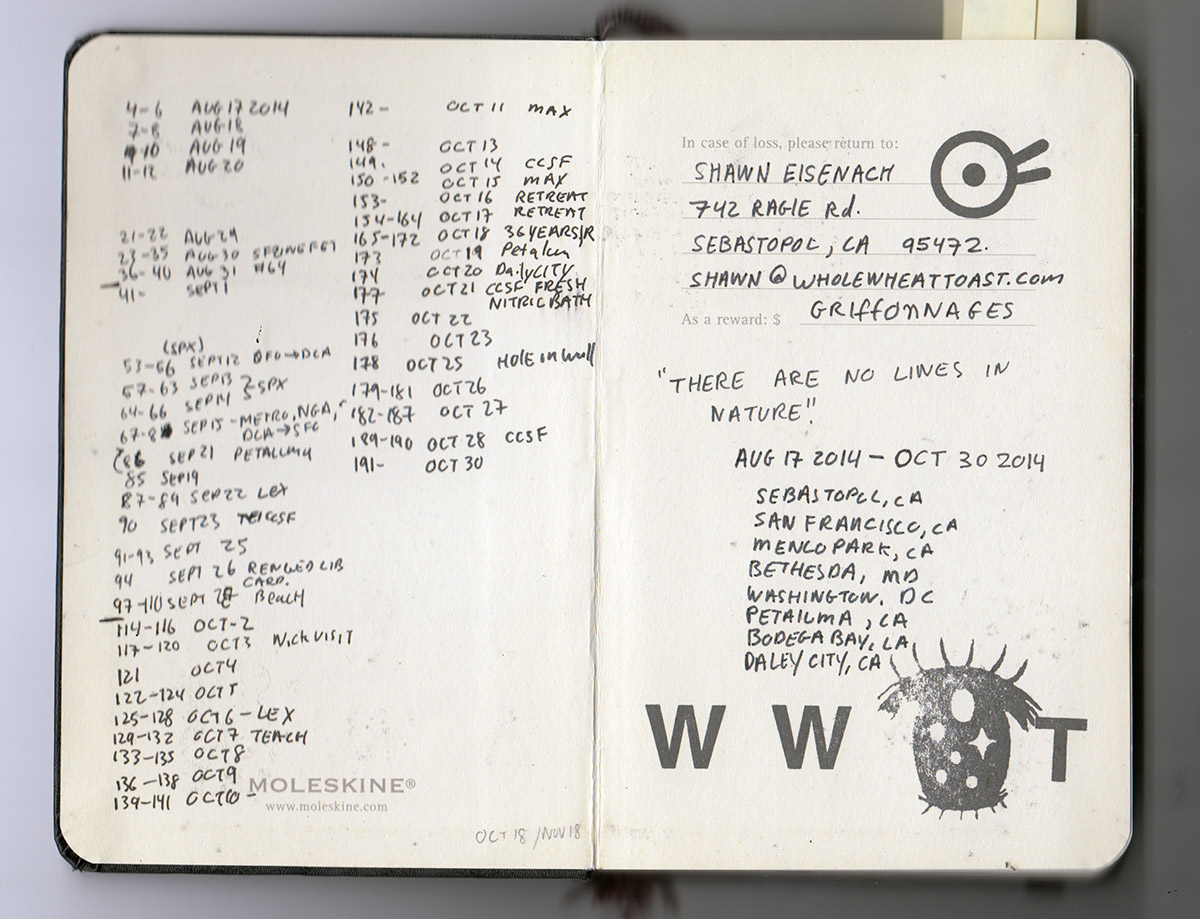 4-6 AUG 17 2014
7-8 AUG 18
10 AUG 19
11-12 AUG 20
21-22 AUG 29
23-35 AUG 30
36-40 AUG 31 #64
41- SEPT 1
(SPX)
53-56 SEPT 12 → DCA
57-63 SEP 13 } SPX
64-66 SEP 14
67- SEP 15 - METRO, NGA,
DCA → SFO
86 SEP 21 PETALUMA
85 SEP 19
87-89 SEP 22 LEX
90 SEPT 23 CCSF
91-93 SEPT 25
94 SEPT 26 RENEWED LIB
CARD.
97-110 SEPT BEACH
114-116 OCT-2
117-120 OCT 3 Nick VISIT
121 OCT 4
122-124 OCT 5
125-128 OCT 6 - LEX
129-132 OCT 7 TEACH
133-135 OCT 8
136-138 OCT 9
139-141 OCT 10 -
142- OCT 11 MAX
148- OCT 13
149. OCT 14 CCSF
150-152 OCT 15 MAX
153- OCT 16 RETREAT
154-164 OCT 17 RETREAT
165-172 OCT 18 36 YEARS/R
173 OCT 19 Petalum
174 OCT 20 DailyCITY
177 OCT 21 CCSF FRESH
NITRIC BATH
175 OCT 22
176 OCT 23
178 OCT 25 HOLE in Wall
179-181 OCT 26
182-187 OCT 27
189-190 OCT 28 CCSF
191- OCT 30
MOLESKINE®
www.moleskine.com
OCT 18 / NOV 18
In case of loss, please return to:
SHAWN EISENACH
742 RAGLE Rd.
SEBASTOPOL, CA 95472.
SHAWN@WHOLEWHEATTOAST.COM
GRIFFONNAGES
As a reward: $
"THERE ARE NO LINES IN
NATURE"
AUG 17 2014 - OCT 30 2014
SEBASTOPOL, CA
SAN FRANCISCO, CA
MENLO PARK, CA
BETHESDA, MD
WASHINGTON, DC
PETALUMA, CA
BODEGA BAY, CA
DALEY CITY, CA
W W T